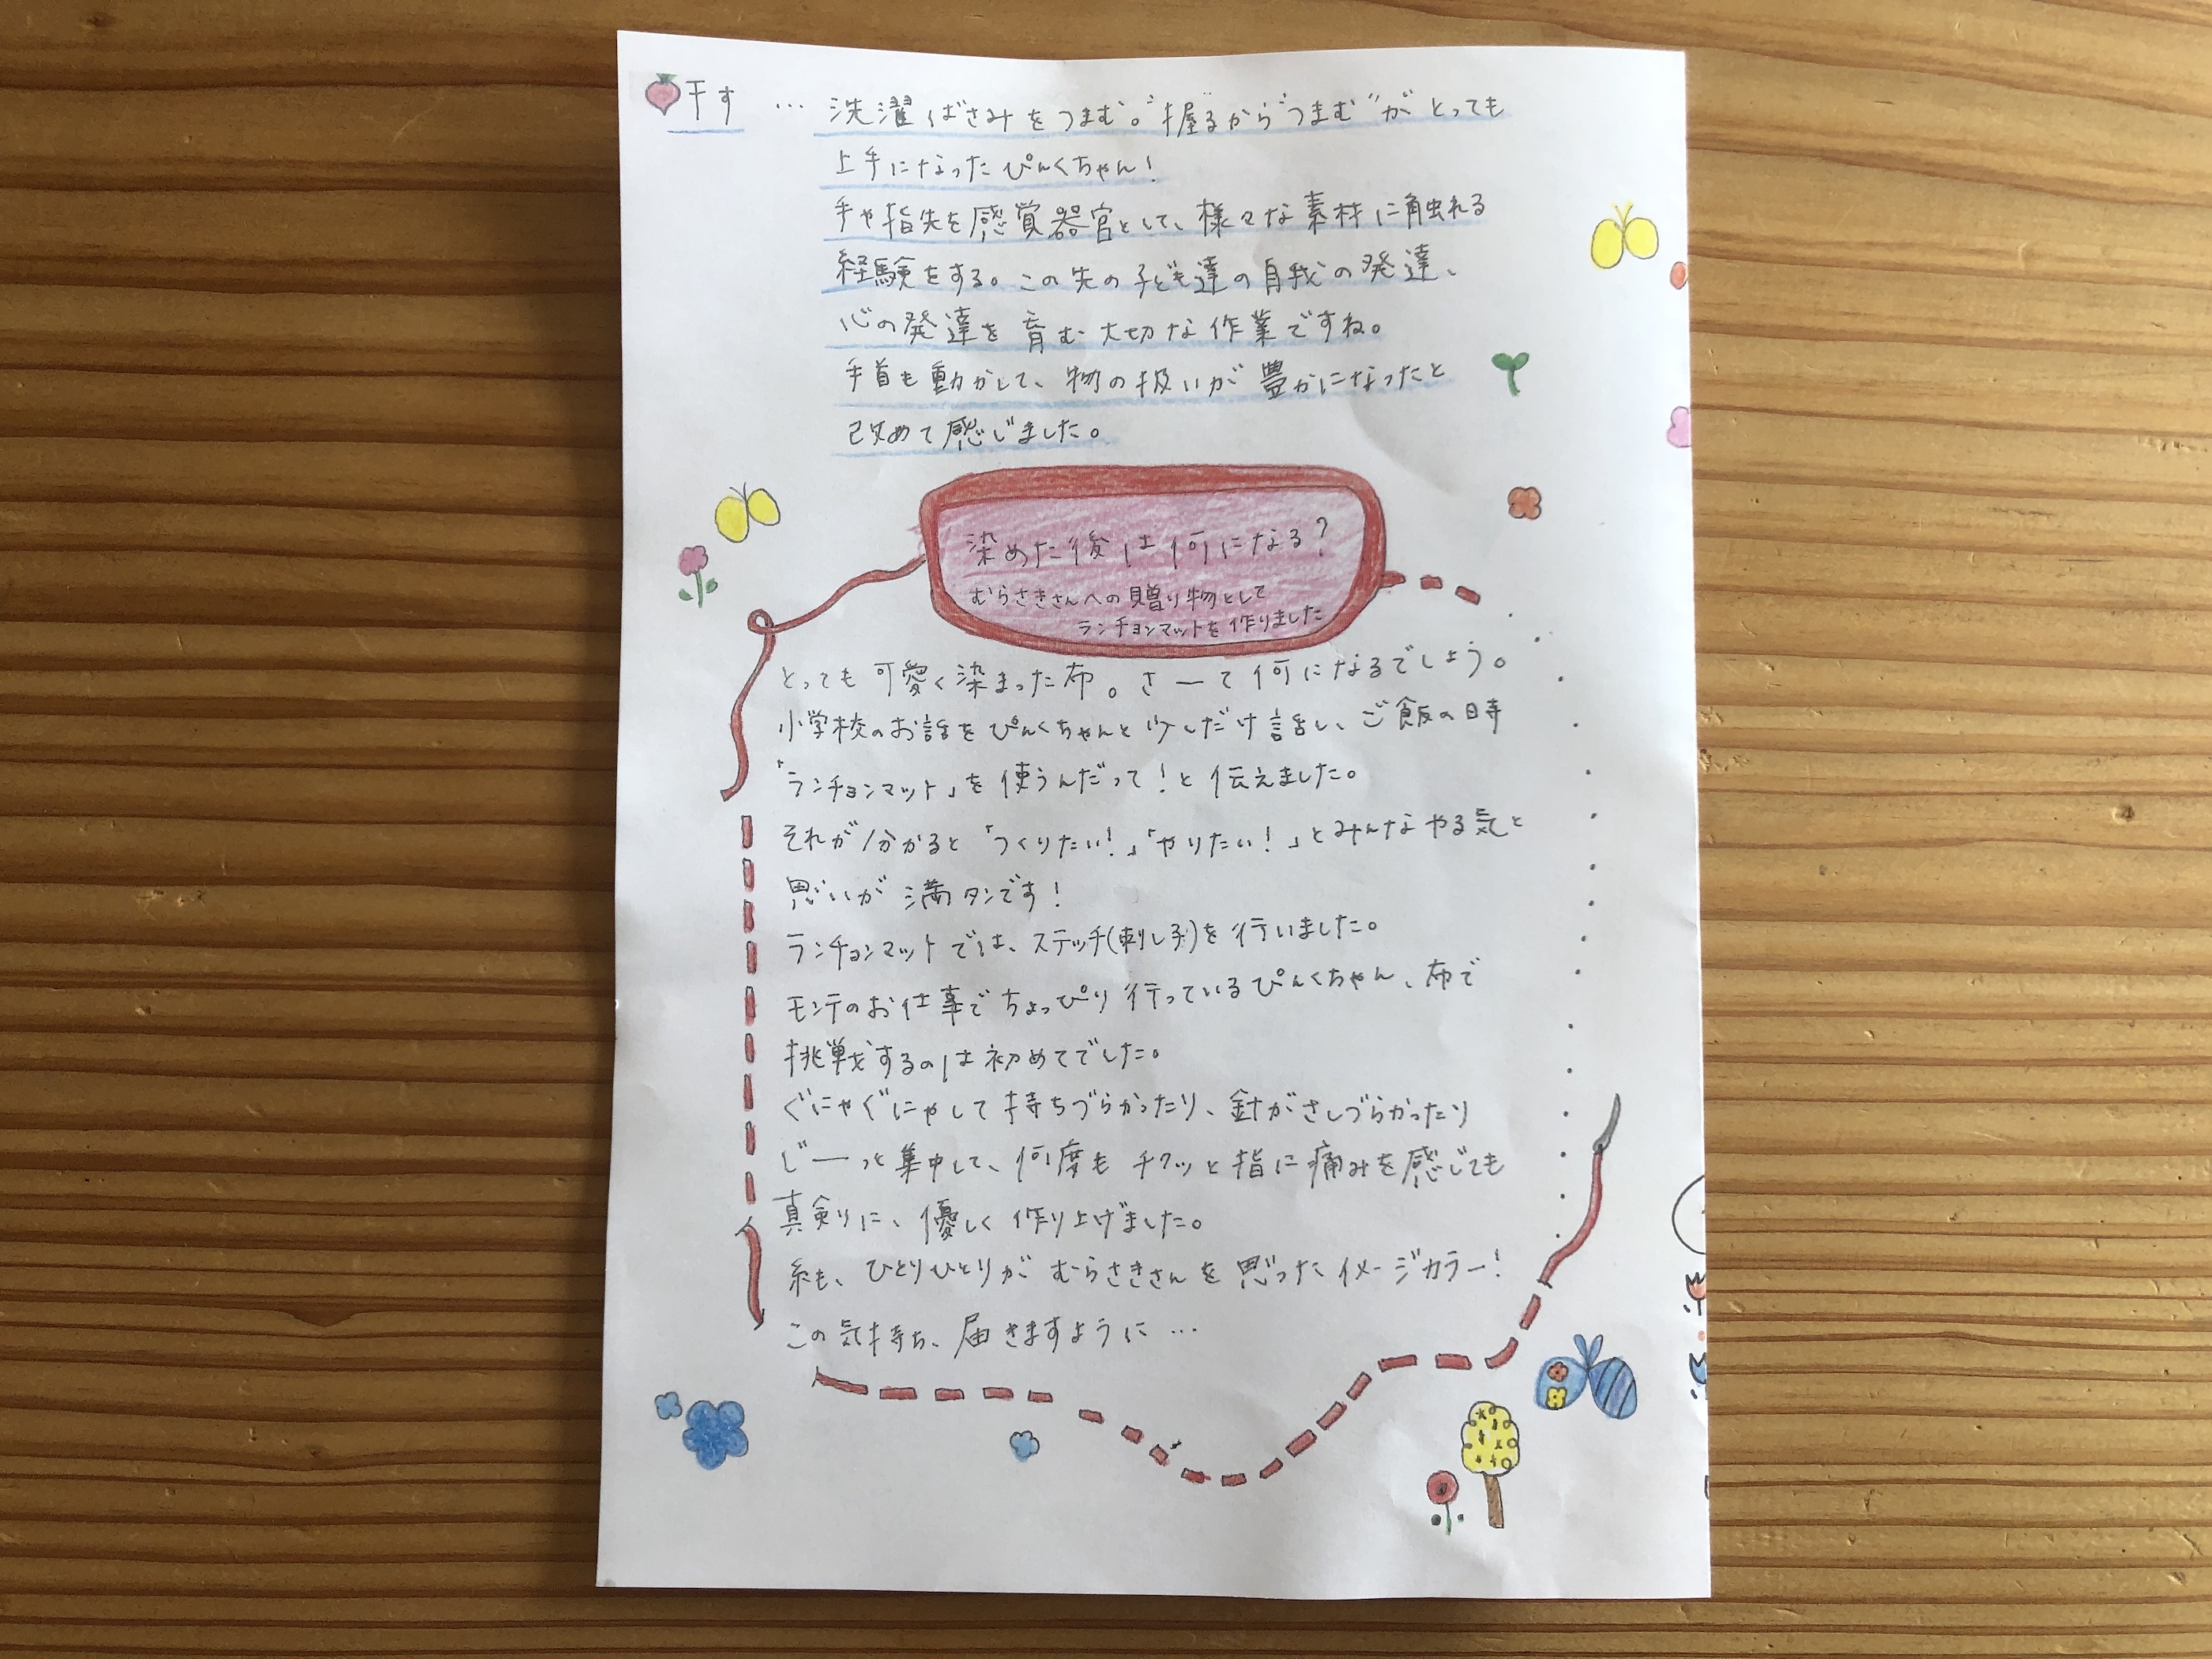 干す … 洗濯ばさみをつまむ。"握るから"つまむ"がとっても
上手になったぴんくちゃん!
手や指先を感覚器官として、様々な素材に触れる
経験をする。この先の子ども達の自我の発達、
心の発達を育む大切な作業ですね。
手首も動かして、物の扱いが豊かになったと
改めて感じました。
染めた後は何になる?
むらさきさんへの贈り物として
ランチョンマットを作りました
とっても可愛く染まった布。さーて何になるでしょう。
小学校のお話をぴんくちゃんと少しだけ話し、ご飯の時
「ランチョンマット」を使うんだって!と伝えました。
それが分かると「つくりたい!」「やりたい!」とみんなやる気と
思いが満タンです!
ランチョンマットでは、ステッチ(刺し子)を行いました。
モンテのお仕事でちょっぴり行っているぴんくちゃん、布で
挑戦するのは初めてでした。
ぐにゃぐにゃして持ちづらかったり、針がさしづらかったり
じーっと集中して、何度もチクッと指に痛みを感じても
真剣に、優しく作り上げました。
糸も、ひとりひとりがむらさきさんを思ったイメージカラー!
この気持ち、届きますように…